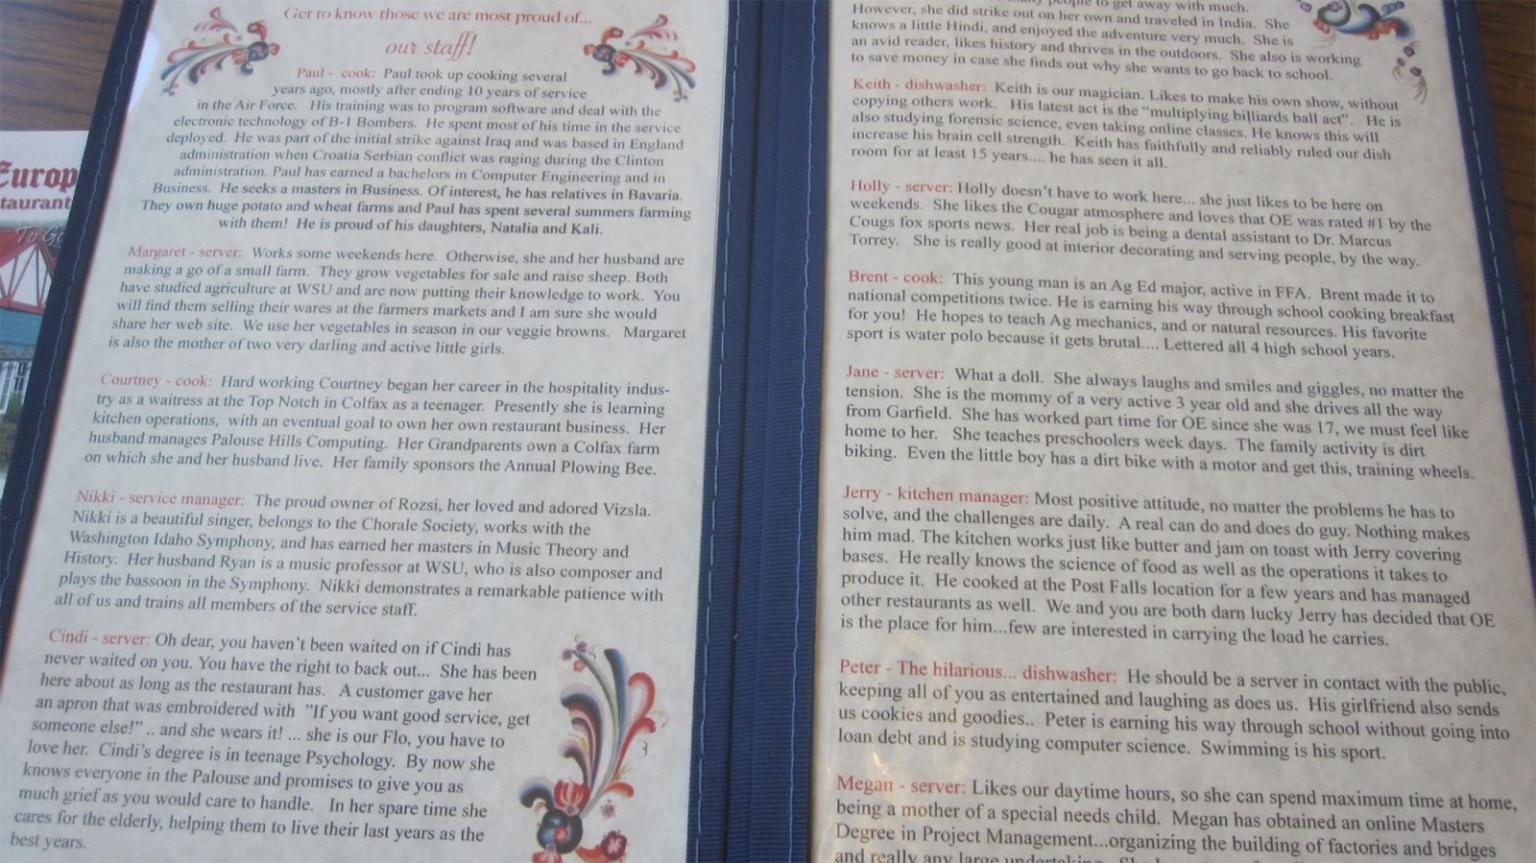 Europ
staurant
To G
Get to know those we are most proud of...
our staff!
Paul - cook: Paul took up cooking several
years ago, mostly after ending 10 years of service
in the Air Force. His training was to program software and deal with the
electronic technology of B-1 Bombers. He spent most of his time in the service
deployed. He was part of the initial strike against Iraq and was based in England
administration when Croatia Serbian conflict was raging during the Clinton
administration. Paul has earned a bachelors in Computer Engineering and in
Business. He seeks a masters in Business. Of interest, he has relatives in Bavaria.
They own huge potato and wheat farms and Paul has spent several summers farming
with them! He is proud of his daughters, Natalia and Kali.
Margaret - server: Works some weekends here. Otherwise, she and her husband are
making a go of a small farm. They grow vegetables for sale and raise sheep. Both
have studied agriculture at WSU and are now putting their knowledge to work. You
will find them selling their wares at the farmers markets and I am sure she would
share her web site. We use her vegetables in season in our veggie browns. Margaret
is also the mother of two very darling and active little girls.
Courtney - cook: Hard working Courtney began her career in the hospitality indus-
try as a waitress at the Top Notch in Colfax as a teenager. Presently she is learning
kitchen operations, with an eventual goal to own her own restaurant business. Her
husband manages Palouse Hills Computing. Her Grandparents own a Colfax farm
on which she and her husband live. Her family sponsors the Annual Plowing Bee.
Nikki - service manager: The proud owner of Rozsi, her loved and adored Vizsla.
Nikki is a beautiful singer, belongs to the Chorale Society, works with the
Washington Idaho Symphony, and has earned her masters in Music Theory and
History. Her husband Ryan is a music professor at WSU, who is also composer and
plays the bassoon in the Symphony. Nikki demonstrates a remarkable patience with
all of us and trains all members of the service staff.
Cindi - server: Oh dear, you haven't been waited on if Cindi has
never waited on you. You have the right to back out... She has been
here about as long as the restaurant has. A customer gave her
an apron that was embroidered with "If you want good service, get
someone else!" .. and she wears it! ... she is our Flo, you have to
love her. Cindi's degree is in teenage Psychology. By now she
knows everyone in the Palouse and promises to give you as
much grief as you would care to handle. In her spare time she
cares for the elderly, helping them to live their last years as the
best years.
people to get away with much.
However, she did strike out on her own and traveled in India. She
knows a little Hindi, and enjoyed the adventure very much. She is
an avid reader, likes history and thrives in the outdoors. She also is working
to save money in case she finds out why she wants to go back to school.
Keith - dishwasher: Keith is our magician. Likes to make his own show, without
copying others work. His latest act is the "multiplying billiards ball act". He is
also studying forensic science, even taking online classes. He knows this will
increase his brain cell strength. Keith has faithfully and reliably ruled our dish
room for at least 15 years.... he has seen it all.
Holly - server: Holly doesn't have to work here... she just likes to be here on
weekends. She likes the Cougar atmosphere and loves that OE was rated #1 by the
Cougs fox sports news. Her real job is being a dental assistant to Dr. Marcus
Torrey. She is really good at interior decorating and serving people, by the way.
Brent - cook: This young man is an Ag Ed major, active in FFA. Brent made it to
national competitions twice. He is earning his way through school cooking breakfast
for you! He hopes to teach Ag mechanics, and or natural resources. His favorite
sport is water polo because it gets brutal.... Lettered all 4 high school years.
Jane - server: What a doll. She always laughs and smiles and giggles, no matter the
tension. She is the mommy of a very active 3 year old and she drives all the way
from Garfield. She has worked part time for OE since she was 17, we must feel like
home to her. She teaches preschoolers week days. The family activity is dirt
biking. Even the little boy has a dirt bike with a motor and get this, training wheels.
Jerry - kitchen manager: Most positive attitude, no matter the problems he has to
solve, and the challenges are daily. A real can do and does do guy. Nothing makes
him mad. The kitchen works just like butter and jam on toast with Jerry covering
bases. He really knows the science of food as well as the operations it takes to
produce it. He cooked at the Post Falls location for a few years and has managed
other restaurants as well. We and you are both darn lucky Jerry has decided that OE
is the place for him...few are interested in carrying the load he carries.
Peter - The hilarious... dishwasher: He should be a server in contact with the public,
keeping all of you as entertained and laughing as does us. His girlfriend also sends
us cookies and goodies.. Peter is earning his way through school without going into
loan debt and is studying computer science. Swimming is his sport.
Megan - server: Likes our daytime hours, so she can spend maximum time at home,
being a mother of a special needs child. Megan has obtained an online Masters
Degree in Project Management...organizing the building of factories and bridges
and really any large undertaking.